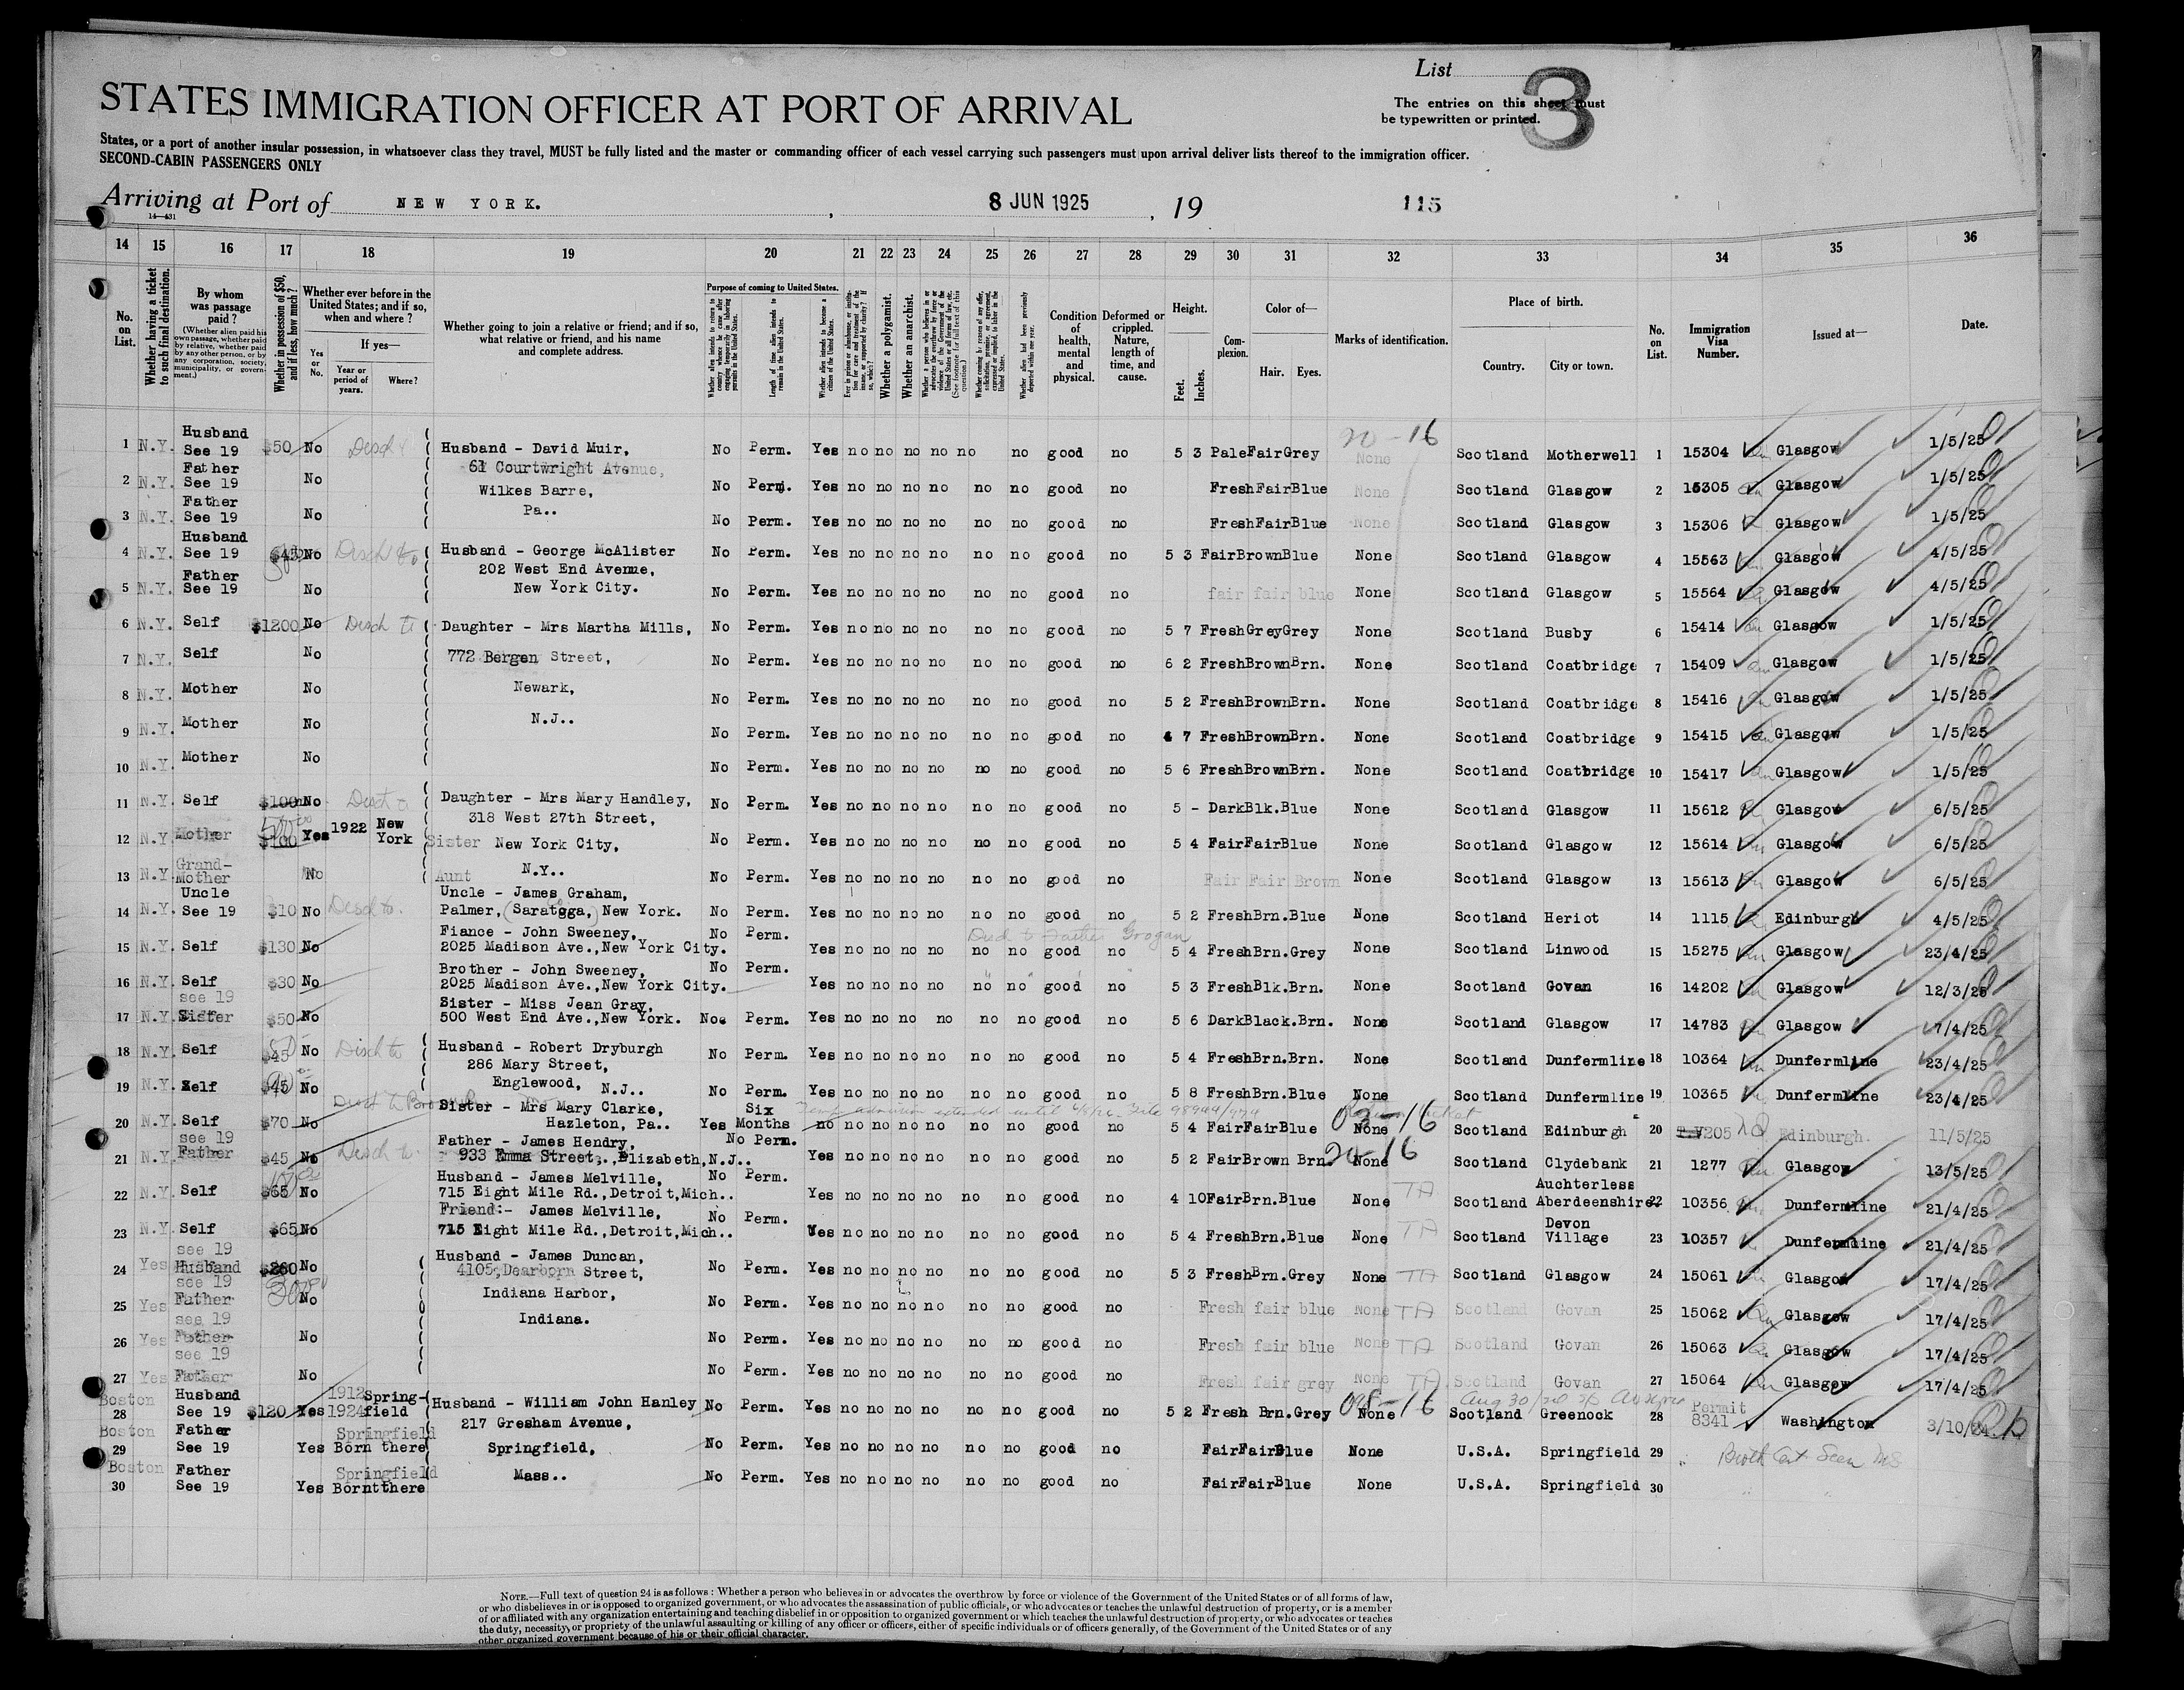 List 3
STATES IMMIGRATION OFFICER AT PORT OF ARRIVAL
The entries on this sheet must
be typewritten or printed.
States, or a port of another insular possession, in whatsoever class they travel, MUST be fully listed and the master or commanding officer of each vessel carrying such passengers must upon arrival deliver lists thereof to the immigration officer.
SECOND-CABIN PASSENGERS ONLY
Arriving at Port of NEW YORK. , 8 JUN 1925 , 19 115
14—431
14 15 16 17 18 19 20 21 22 23 24 25 26 27 28 29 30 31 32 33 34 35 36
No. on List.
Whether having a ticket to such final destination.
By whom was passage paid?
(Whether alien paid his own passage, whether paid by relative, whether paid by any other person, or by any corporation, society, municipality, or government.)
Whether in possession of $50, and if less, how much?
Whether ever before in the United States; and if so, when and where?
If yes—
Yes or No.
Year or period of years.
Where?
Whether going to join a relative or friend; and if so, what relative or friend, and his name and complete address.
Purpose of coming to United States.
Length of time alien intends to remain in the United States.
Whether alien intends to become a citizen of the United States.
Whether a polygamist.
Whether an anarchist.
Condition of health, mental and physical.
Deformed or crippled. Nature, length of time, and cause.
Height.
Feet. Inches.
Complexion.
Color of—
Hair. Eyes.
Marks of identification.
Place of birth.
Country. City or town.
No. on List.
Immigration Visa Number.
Issued at—
Date.
1 N.Y. Husband See 19 $50 No Husband - David Muir, No Perm. Yes no no no no no no good no 5 3 Pale Fair Grey None Scotland Motherwell 1 15304 Glasgow 1/5/25
20-16
61 Courtwright Avenue,
2 N.Y. Father See 19 No Wilkes Barre, No Perm. Yes no no no no no no good no Fresh Fair Blue None Scotland Glasgow 2 15305 Glasgow 1/5/25
3 N.Y. Father See 19 No Pa.. No Perm. Yes no no no no no no good no Fresh Fair Blue None Scotland Glasgow 3 15306 Glasgow 1/5/25
4 N.Y. Husband See 19 $45 No Disch to Husband - George McAlister No Perm. Yes no no no no no no good no 5 3 Fair Brown Blue None Scotland Glasgow 4 15563 Glasgow 4/5/25
202 West End Avenue,
5 N.Y. Father See 19 No New York City. No Perm. Yes no no no no no no good no fair fair blue None Scotland Glasgow 5 15564 Glasgow 4/5/25
6 N.Y. Self $1200 No Disch to Daughter - Mrs Martha Mills, No Perm. Yes no no no no no no good no 5 7 Fresh Grey Grey None Scotland Busby 6 15414 Glasgow 1/5/25
7 N.Y. Self No 772 Bergen Street, No Perm. Yes no no no no no no good no 6 2 Fresh Brown Brn. None Scotland Coatbridge 7 15409 Glasgow 1/5/25
8 N.Y. Mother No Newark, No Perm. Yes no no no no no no good no 5 2 Fresh Brown Brn. None Scotland Coatbridge 8 15416 Glasgow 1/5/25
9 N.Y. Mother No N.J.. No Perm. Yes no no no no no no good no 4 7 Fresh Brown Brn. None Scotland Coatbridge 9 15415 Glasgow 1/5/25
10 N.Y. Mother No No Perm. Yes no no no no no no good no 5 6 Fresh Brown Brn. None Scotland Coatbridge 10 15417 Glasgow 1/5/25
11 N.Y. Self $100 No Daughter - Mrs Mary Handley, No Perm. Yes no no no no no no good no 5 - Dark Blk. Blue None Scotland Glasgow 11 15612 Glasgow 6/5/25
318 West 27th Street,
12 N.Y. Mother $100 Yes 1922 New York Sister New York City, No Perm. Yes no no no no no no good no 5 4 Fair Fair Blue None Scotland Glasgow 12 15614 Glasgow 6/5/25
13 N.Y. Grand-Mother No Aunt N.Y.. No Perm. Yes no no no no no no good no Fair Fair Brown None Scotland Glasgow 13 15613 Glasgow 6/5/25
14 N.Y. Uncle See 19 $10 No Disch to. Uncle - James Graham, Palmer, (Saratoga,) New York. No Perm. Yes no no no no no no good no 5 2 Fresh Brn. Blue None Scotland Heriot 14 1115 Edinburgh 4/5/25
15 N.Y. Self $130 No Fiance - John Sweeney, 2025 Madison Ave., New York City. No Perm. Yes no no no no no no good no 5 4 Fresh Brn. Grey None Scotland Linwood 15 15275 Glasgow 23/4/25
16 N.Y. Self $30 No Brother - John Sweeney, 2025 Madison Ave., New York City. No Perm. Yes no no no no no no good no 5 3 Fresh Blk. Brn. None Scotland Govan 16 14202 Glasgow 12/3/25
17 N.Y. see 19 Sister $50 No Sister - Miss Jean Gray, 500 West End Ave., New York. No Perm. Yes no no no no no no good no 5 6 Dark Black. Brn. None Scotland Glasgow 17 14783 Glasgow 7/4/25
18 N.Y. Self $45 No Disch to Husband - Robert Dryburgh No Perm. Yes no no no no no no good no 5 4 Fresh Brn. Brn. None Scotland Dunfermline 18 10364 Dunfermline 23/4/25
286 Mary Street,
19 N.Y. Self $45 No Englewood, N.J.. No Perm. Yes no no no no no no good no 5 8 Fresh Brn. Blue None Scotland Dunfermline 19 10365 Dunfermline 23/4/25
20 N.Y. Self $70 No Sister - Mrs Mary Clarke, Hazleton, Pa.. Yes Six Months no no no no no no no good no 5 4 Fair Fair Blue None Scotland Edinburgh 20 205 Edinburgh. 11/5/25
21 N.Y. see 19 Father $45 No Disch to Father - James Hendry, 933 Emma Street, Elizabeth, N.J.. No Perm. Yes no no no no no no good no 5 2 Fair Brown Brn. None Scotland Clydebank 21 1277 Glasgow 13/5/25
22 N.Y. Self $65 No Husband - James Melville, 715 Eight Mile Rd., Detroit, Mich.. No Perm. Yes no no no no no no good no 4 10 Fair Brn. Blue None TA Scotland Auchterless Aberdeenshire 22 10356 Dunfermline 21/4/25
23 N.Y. Self $65 No Friend:- James Melville, 715 Eight Mile Rd., Detroit, Mich.. No Perm. Yes no no no no no no good no 5 4 Fresh Brn. Blue None TA Scotland Devon Village 23 10357 Dunfermline 21/4/25
24 Yes see 19 Husband No Husband - James Duncan, No Perm. Yes no no no no no no good no 5 3 Fresh Brn. Grey None TA Scotland Glasgow 24 15061 Glasgow 17/4/25
4105, Dearborn Street,
25 Yes see 19 Father No Indiana Harbor, No Perm. Yes no no no no no no good no Fresh fair blue None TA Scotland Govan 25 15062 Glasgow 17/4/25
Indiana.
26 Yes see 19 Father No No Perm. Yes no no no no no no good no Fresh fair blue None TA Scotland Govan 26 15063 Glasgow 17/4/25
27 Yes see 19 Father No No Perm. Yes no no no no no no good no Fresh fair grey None TA Scotland Govan 27 15064 Glasgow 17/4/25
28 Boston Husband See 19 $120 Yes 1912 1924 Springfield Husband - William John Hanley No Perm. Yes no no no no no no good no 5 2 Fresh Brn. Grey None Scotland Greenock 28 Permit 8341 Washington 3/10/24
217 Gresham Avenue,
29 Boston Father See 19 Yes Springfield Born there Springfield, No Perm. Yes no no no no no no good no Fair Fair Blue None U.S.A. Springfield 29 Birth Cert Seen
30 Boston Father See 19 Yes Springfield Born there Mass.. No Perm. Yes no no no no no no good no Fair Fair Blue None U.S.A. Springfield 30
NOTE.—Full text of question 24 is as follows: Whether a person who believes in or advocates the overthrow by force or violence of the Government of the United States or of all forms of law,
or who disbelieves in or is opposed to organized government, or who advocates the assassination of public officials, or who advocates or teaches the unlawful destruction of property, or is a member
of or affiliated with any organization entertaining and teaching disbelief in or opposition to organized government or which teaches the unlawful destruction of property, or who advocates or teaches
the duty, necessity, or propriety of the unlawful assaulting or killing of any officer or officers, either of specific individuals or of officers generally, of the Government of the United States or of any
other organized government because of his or their official character.